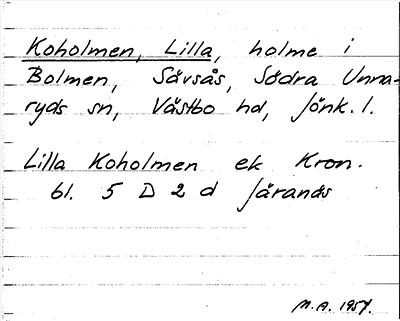 Koholmen, Lilla, holme i
Bolmen, Sävsås, Södra Unna-
ryds sn, Västbo hd, Jönk. l.
Lilla Koholmen ek Kron.
bl. 5 D 2 d Järanäs
M.A. 1957.